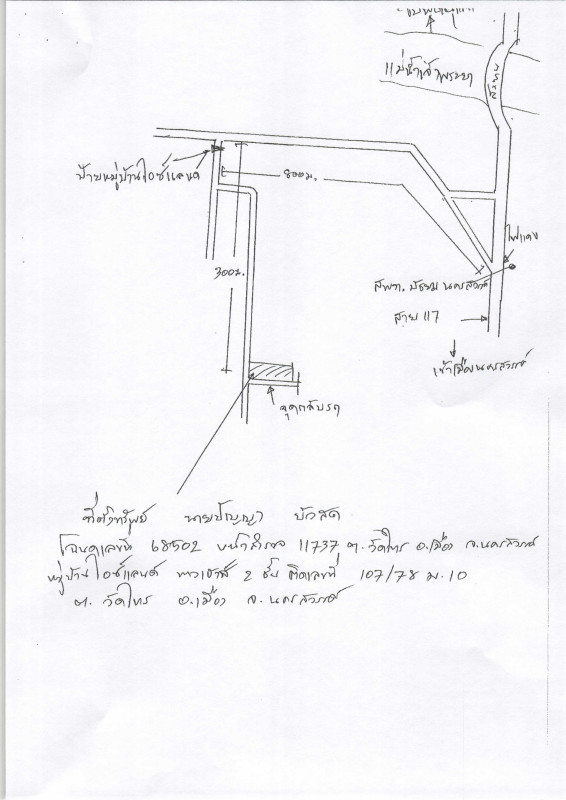 แม่น้ำเจ้าพระยา
สะพาน
ป้ายหมู่บ้านไอซ์แลนด์
800ม.
300ม.
ไฟแดง
สพท. มัธยม นครสวรรค์
สาย 117
เข้าเมืองนครสวรรค์
จุดกลับรถ
ที่ตั้งทรัพย์ นายปัญญา บัวสด
โฉนดเลขที่ 68502 หน้าสำรวจ 11737 ต.วัดไทร อ.เมือง จ.นครสวรรค์
หมู่บ้านไอซ์แลนด์ ทาวเฮาส์ 2 ชั้น ติดเลขที่ 107/78 ม.10
ต. วัดไทร อ.เมือง จ. นครสวรรค์